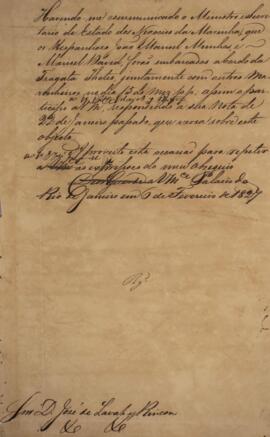 Havendo me communicado o Ministro e Secre
tario de Estado dos Negocios da Marinha, que
os Hespanhoes João Manoel Menhes e
Manoel Barco, forão embarcados a bordo da
Fragata Thetis, juntamente com outros Ma
rinheiros no dia 19 do Mez p.p. assim o par-
ticipo a em resposta á sua Nota de
22 de Janeiro passado, que versa sobre este
objeto.
Aproveito esta occasião para repetir a
as expressões do meu obsequio
Palacio do
Rio de Janeiro em 6 de Fevereiro de 1827
Snr D. José de